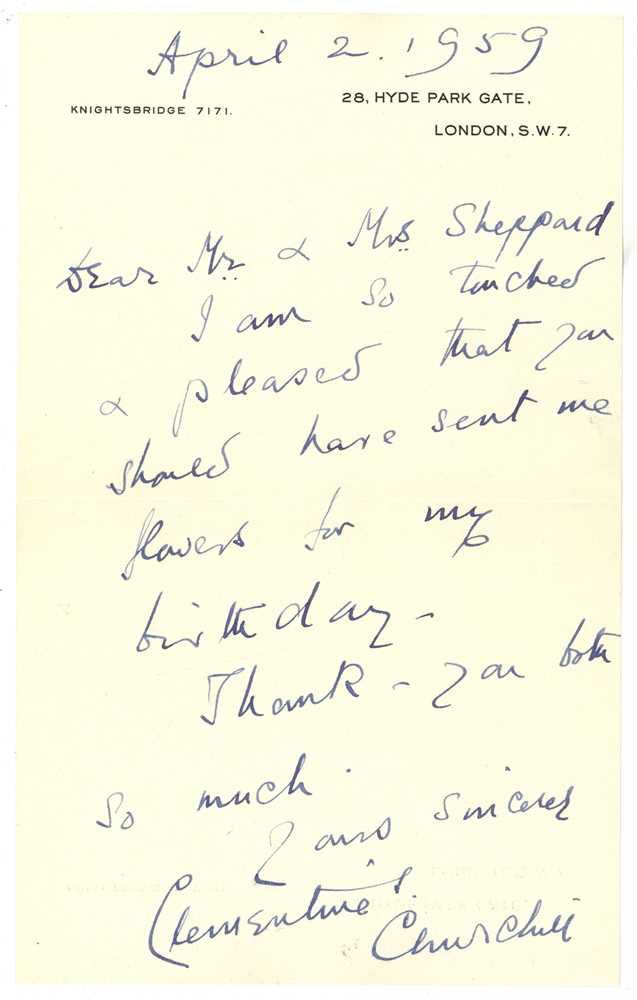 April 2. 1959
KNIGHTSBRIDGE 7171.
28, HYDE PARK GATE,
LONDON, S.W.7.
Dear Mr & Mrs Sheppard
I am so touched
& pleased that you
should have sent me
flowers for my
birthday -
Thank - you both
so much.
Yours sincerely
Clementine S.
Churchill